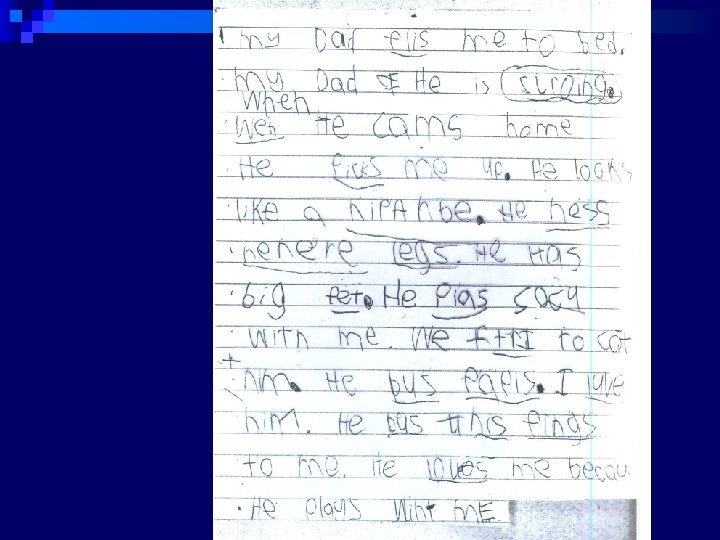 my Dad Pils me to bed.
my Dad & He is surding.
When
wen He cams home
He Picks me up. He looks
like a hipAhbe. He hess
henere legs. He Has
big fet. He Plas socy
with me. We f trI to cot
hm. He bus Papis. I luve
him. He bus this fings
to me. He loves me becau
He plays wiht mE